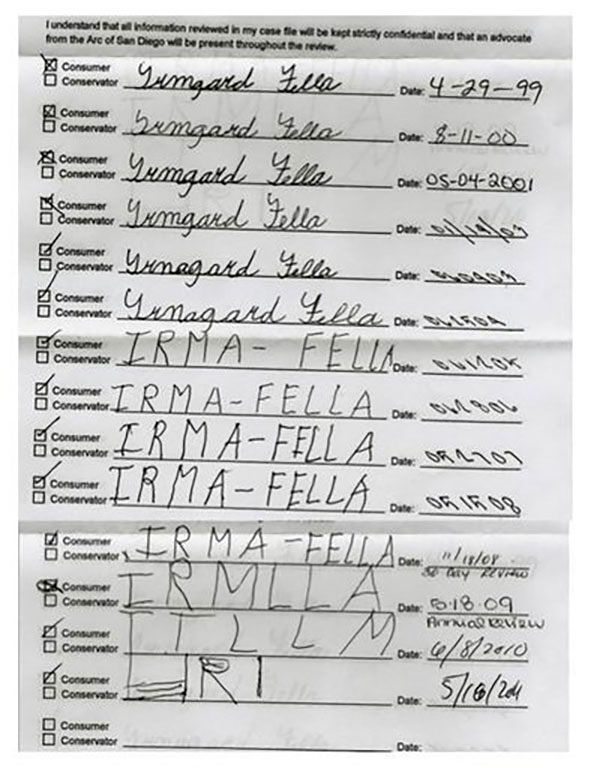 I understand that all information reviewed in my case file will be kept strictly confidential and that an advocate
from the Arc of San Diego will be present throughout the review.
Consumer
Conservator Irmgard Fella Date: 4-29-99
Consumer
Conservator Irmgard Fella Date: 8-11-00
Consumer
Conservator Irmgard Fella Date: 05-04-2001
Consumer
Conservator Irmgard Fella Date:
Consumer
Conservator Irmagard Fella Date:
Consumer
Conservator Irmagard Fella Date:
Consumer
Conservator IRMA- FELLA Date:
Consumer
Conservator IRMA-FELLA Date:
Consumer
Conservator IRMA-FELLA Date:
Consumer
Conservator IRMA-FELLA Date:
Consumer
Conservator IRMA-FELLA Date: 11/18/08
30 DAY REVIEW
Consumer
Conservator IRMLLA Date: 5.18.09
Annual Review
Consumer
Conservator ILLM Date: 6/8/2010
Consumer
Conservator RI Date:
Consumer
Conservator Date: